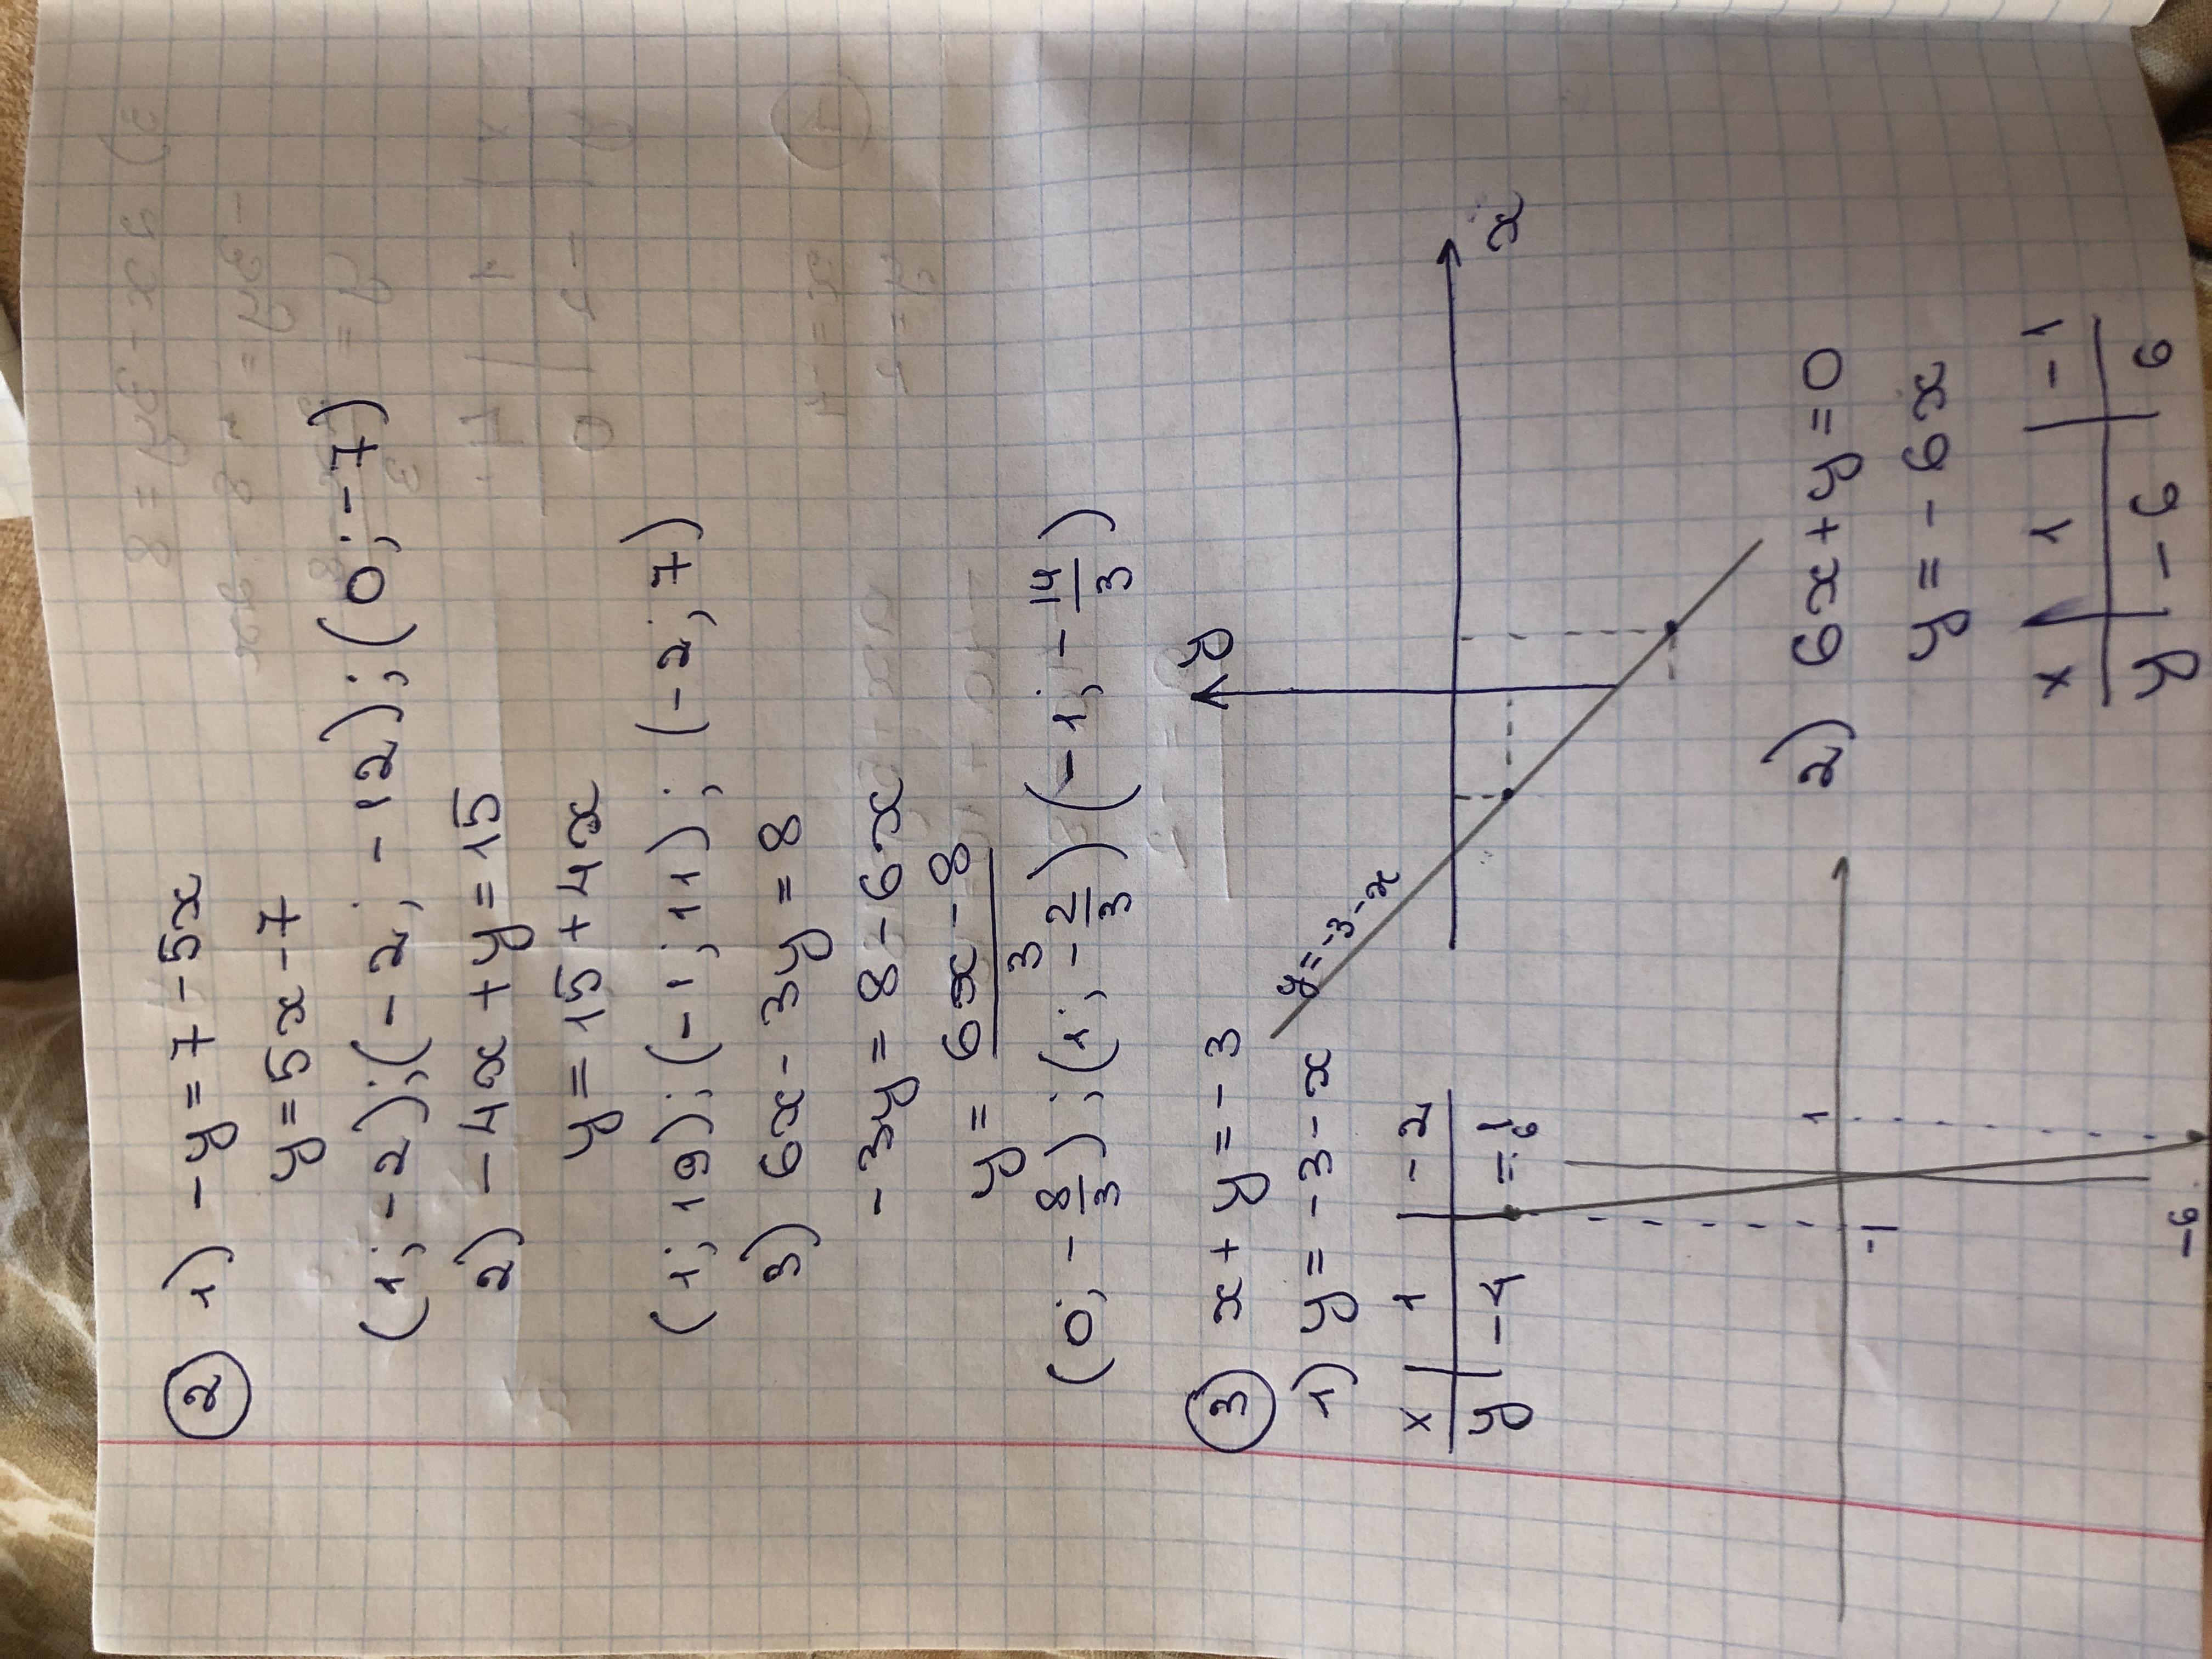 ② 1) -y = 7 - 5x
y = 5x - 7
(1; -2); (-2; -12); (0; -7)
2) -4x + y = 15
y = 15 + 4x
(1; 19); (-1; 11); (-2; 7)
3) 6x - 3y = 8
-3y = 8 - 6x
y = \frac{6x - 8}{3}
(0; -\frac{8}{3}); (1; -\frac{2}{3}) (-1; -\frac{14}{3})
③ x + y = -3
1) y = -3 - x
x | 1 | -2
y | -4 | -1
y
x
y = -3 - x
2) 6x + y = 0
y = -6x
x | 1 | -1
y | -6 | 6
6
1
-1
-6